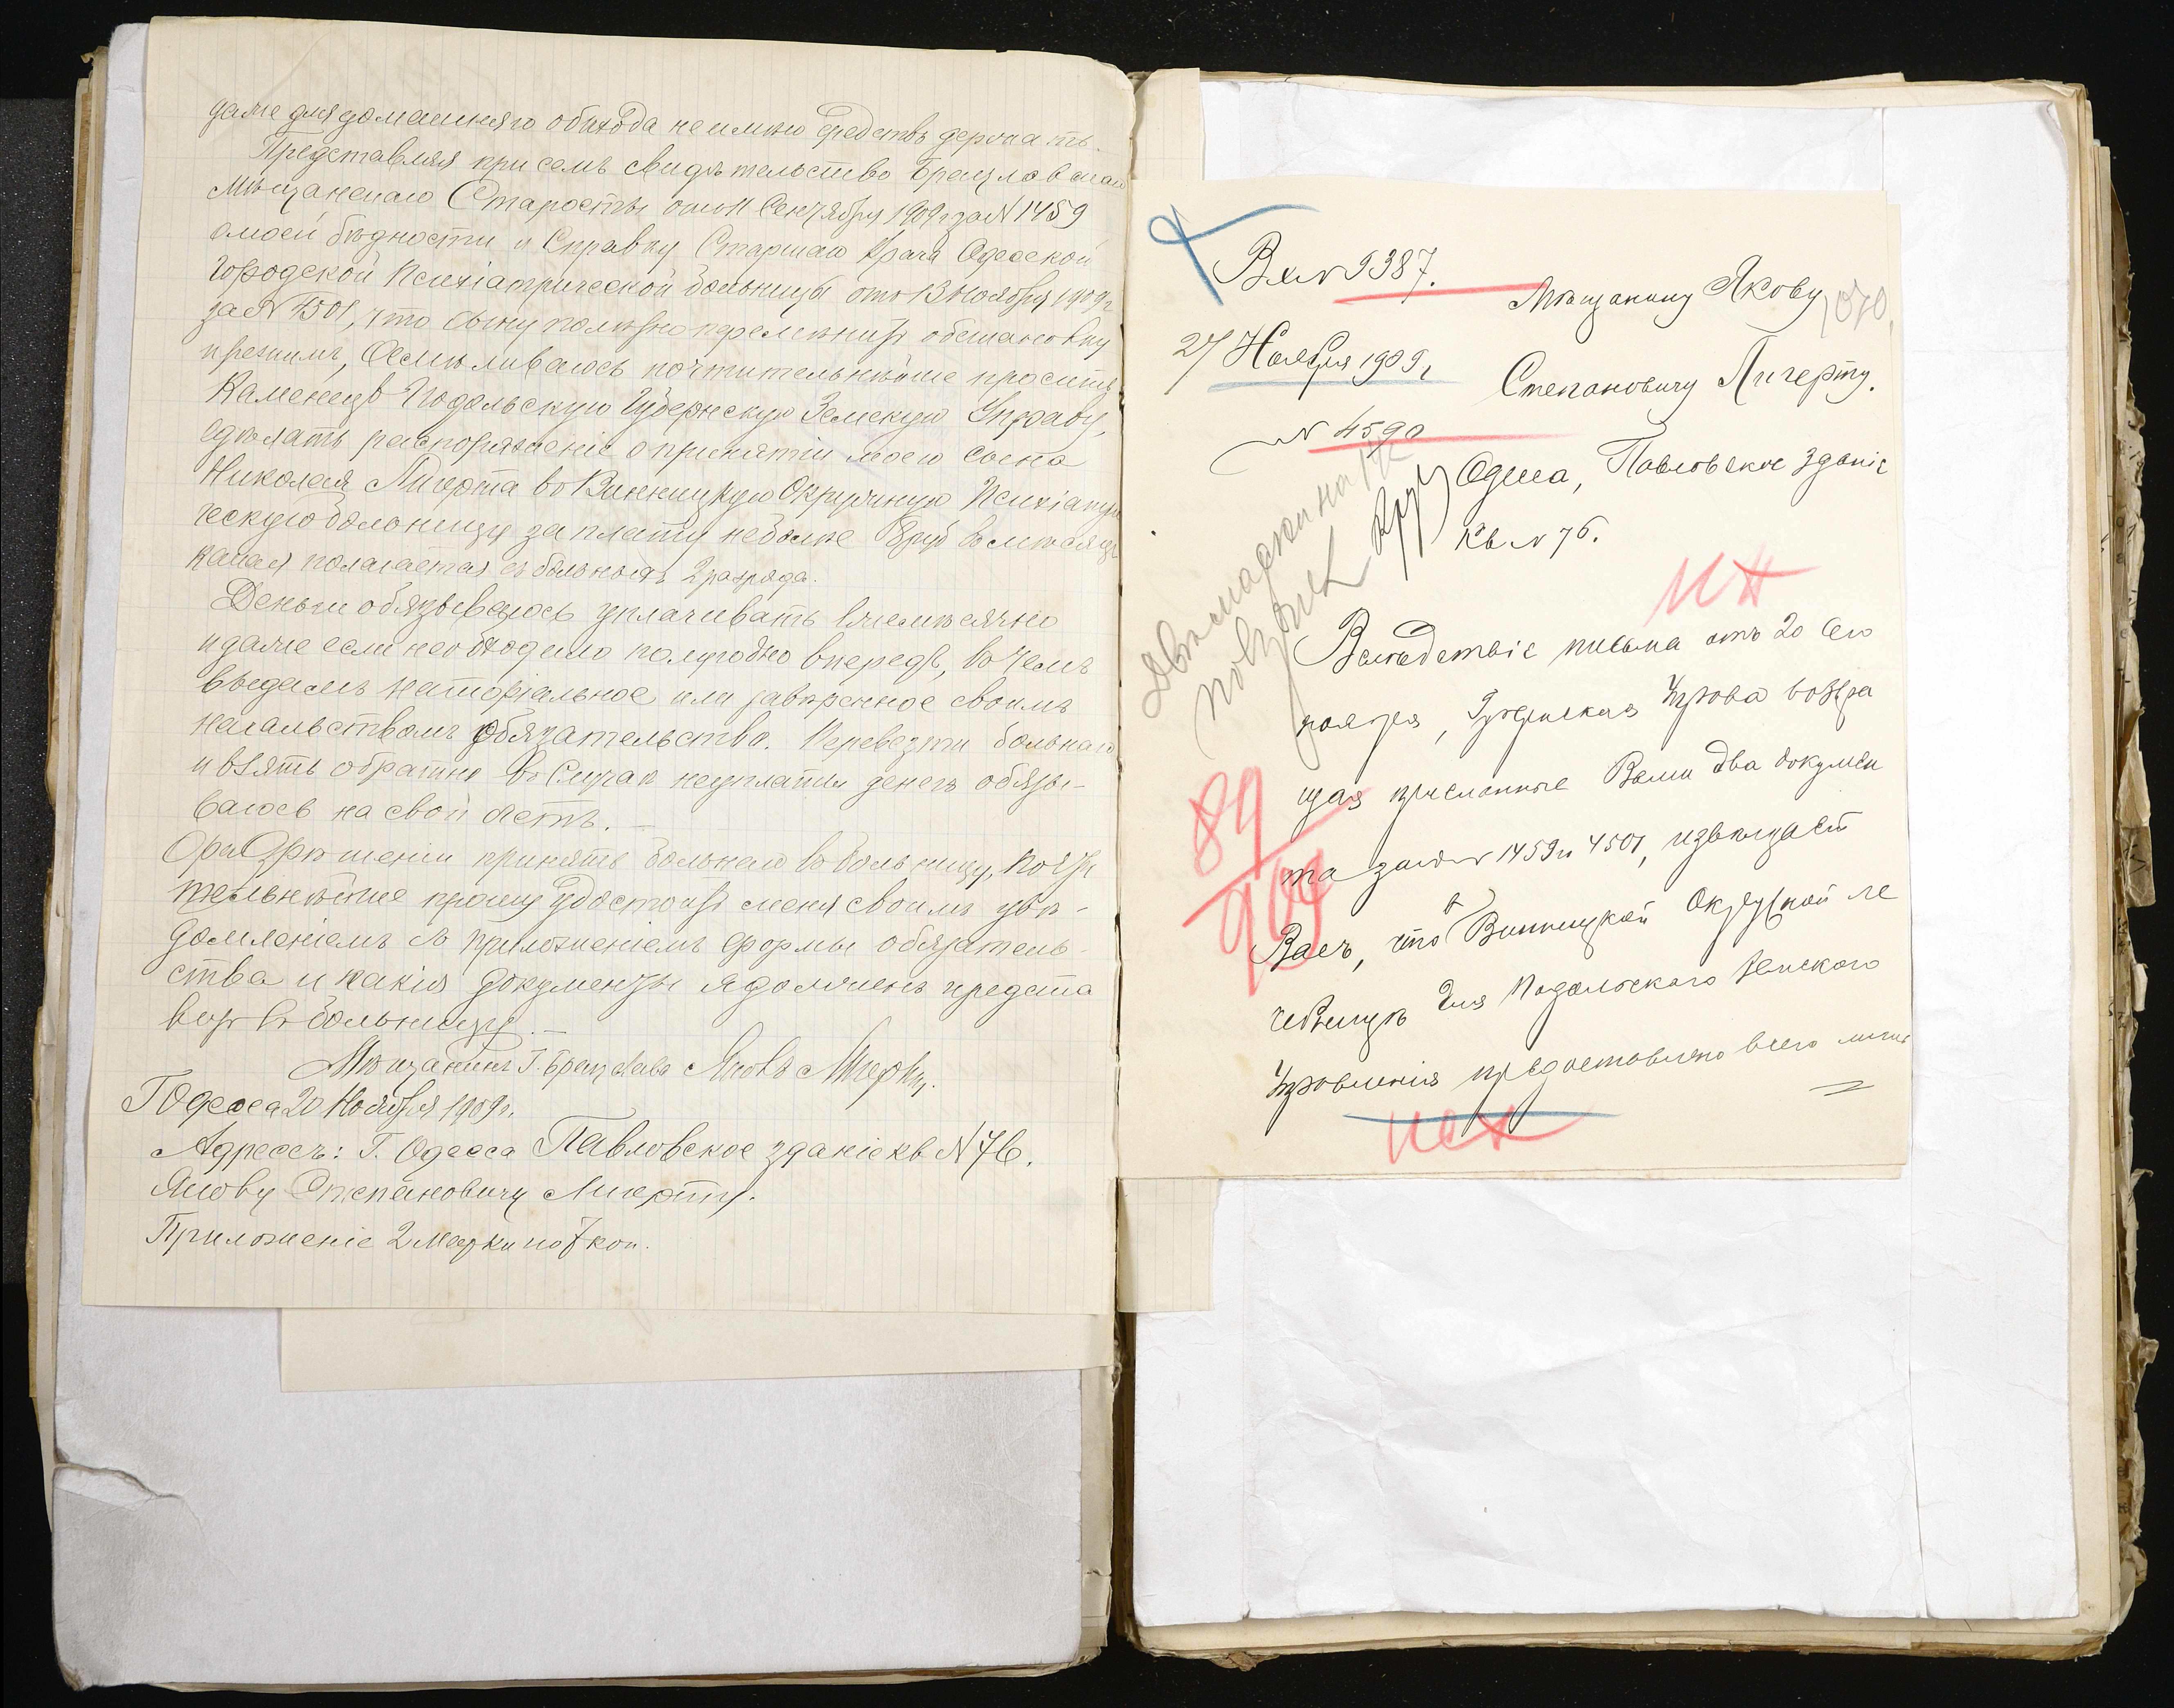 даже для домашняго обихода не имѣю средствъ держать.
Представляя при семъ свидѣтельство Брацлавскаго
Мѣщанскаго Старосты отъ 11 Сентября 1909 г за N 1459
о моей бѣдности и Справку Старшаго Врача Одесской
Городской Психіатрической больницы отъ 13 Ноября 1909 г
за N 4501, что сыну полезно перемѣнить обстановку
и режимъ, осмѣливаюсь почтительнѣйше просить
Каменецъ Подольскую Губернскую Земскую Управу,
сдѣлать распоряженіе о принятіи моего сына
Николая въ Винницкую Окружную Психіатри
ческую больницу за плату не болѣе руб въ мѣсяцъ
какая полагается съ больныхъ 2 разряда.
Деньги обязываюсь уплачивать ежемѣсячно
и даже если необходимо полугодно впередъ, въ чемъ
выдамъ наторіальное или завѣренное своимъ
начальствомъ обязательство. Перевезти больнаго
и взять обратно въ случаѣ неуплаты денегъ обязы-
ваюсь на свой счетъ.
О разрѣшеніи принять больнаго въ больницу, почти
тельнѣйше прошу удостоить меня своимъ увѣ-
домленіемъ съ приложеніемъ формы обязатель-
ства и какія документы я долженъ предста
вить въ больницу.
Мѣщанинъ Г. Брацлава Яковъ
Г Одесса 20 Ноября 1909 г.
Адресъ: Г. Одесса Павловское зданіе кв N 76.
Якову Степановичу
Приложеніе 2 Марки по 7 коп.
Вх N 9387.
Мѣщанину Якову
27 Ноября 1909 г
Степановичу
N 4590
Одесса, Павловское зданіе
Кв N 76.
Вслѣдствіе письма отъ 20 сего
ноября, Губернская Управа возвра
щая присланные Вами два докумен
та за N N 1459 и 4501, извѣщаетъ
Васъ, что въ Винницкой Окружной ле
чебницѣ для Подольскаго Земскаго
Управленія предоставлено всего
89
909